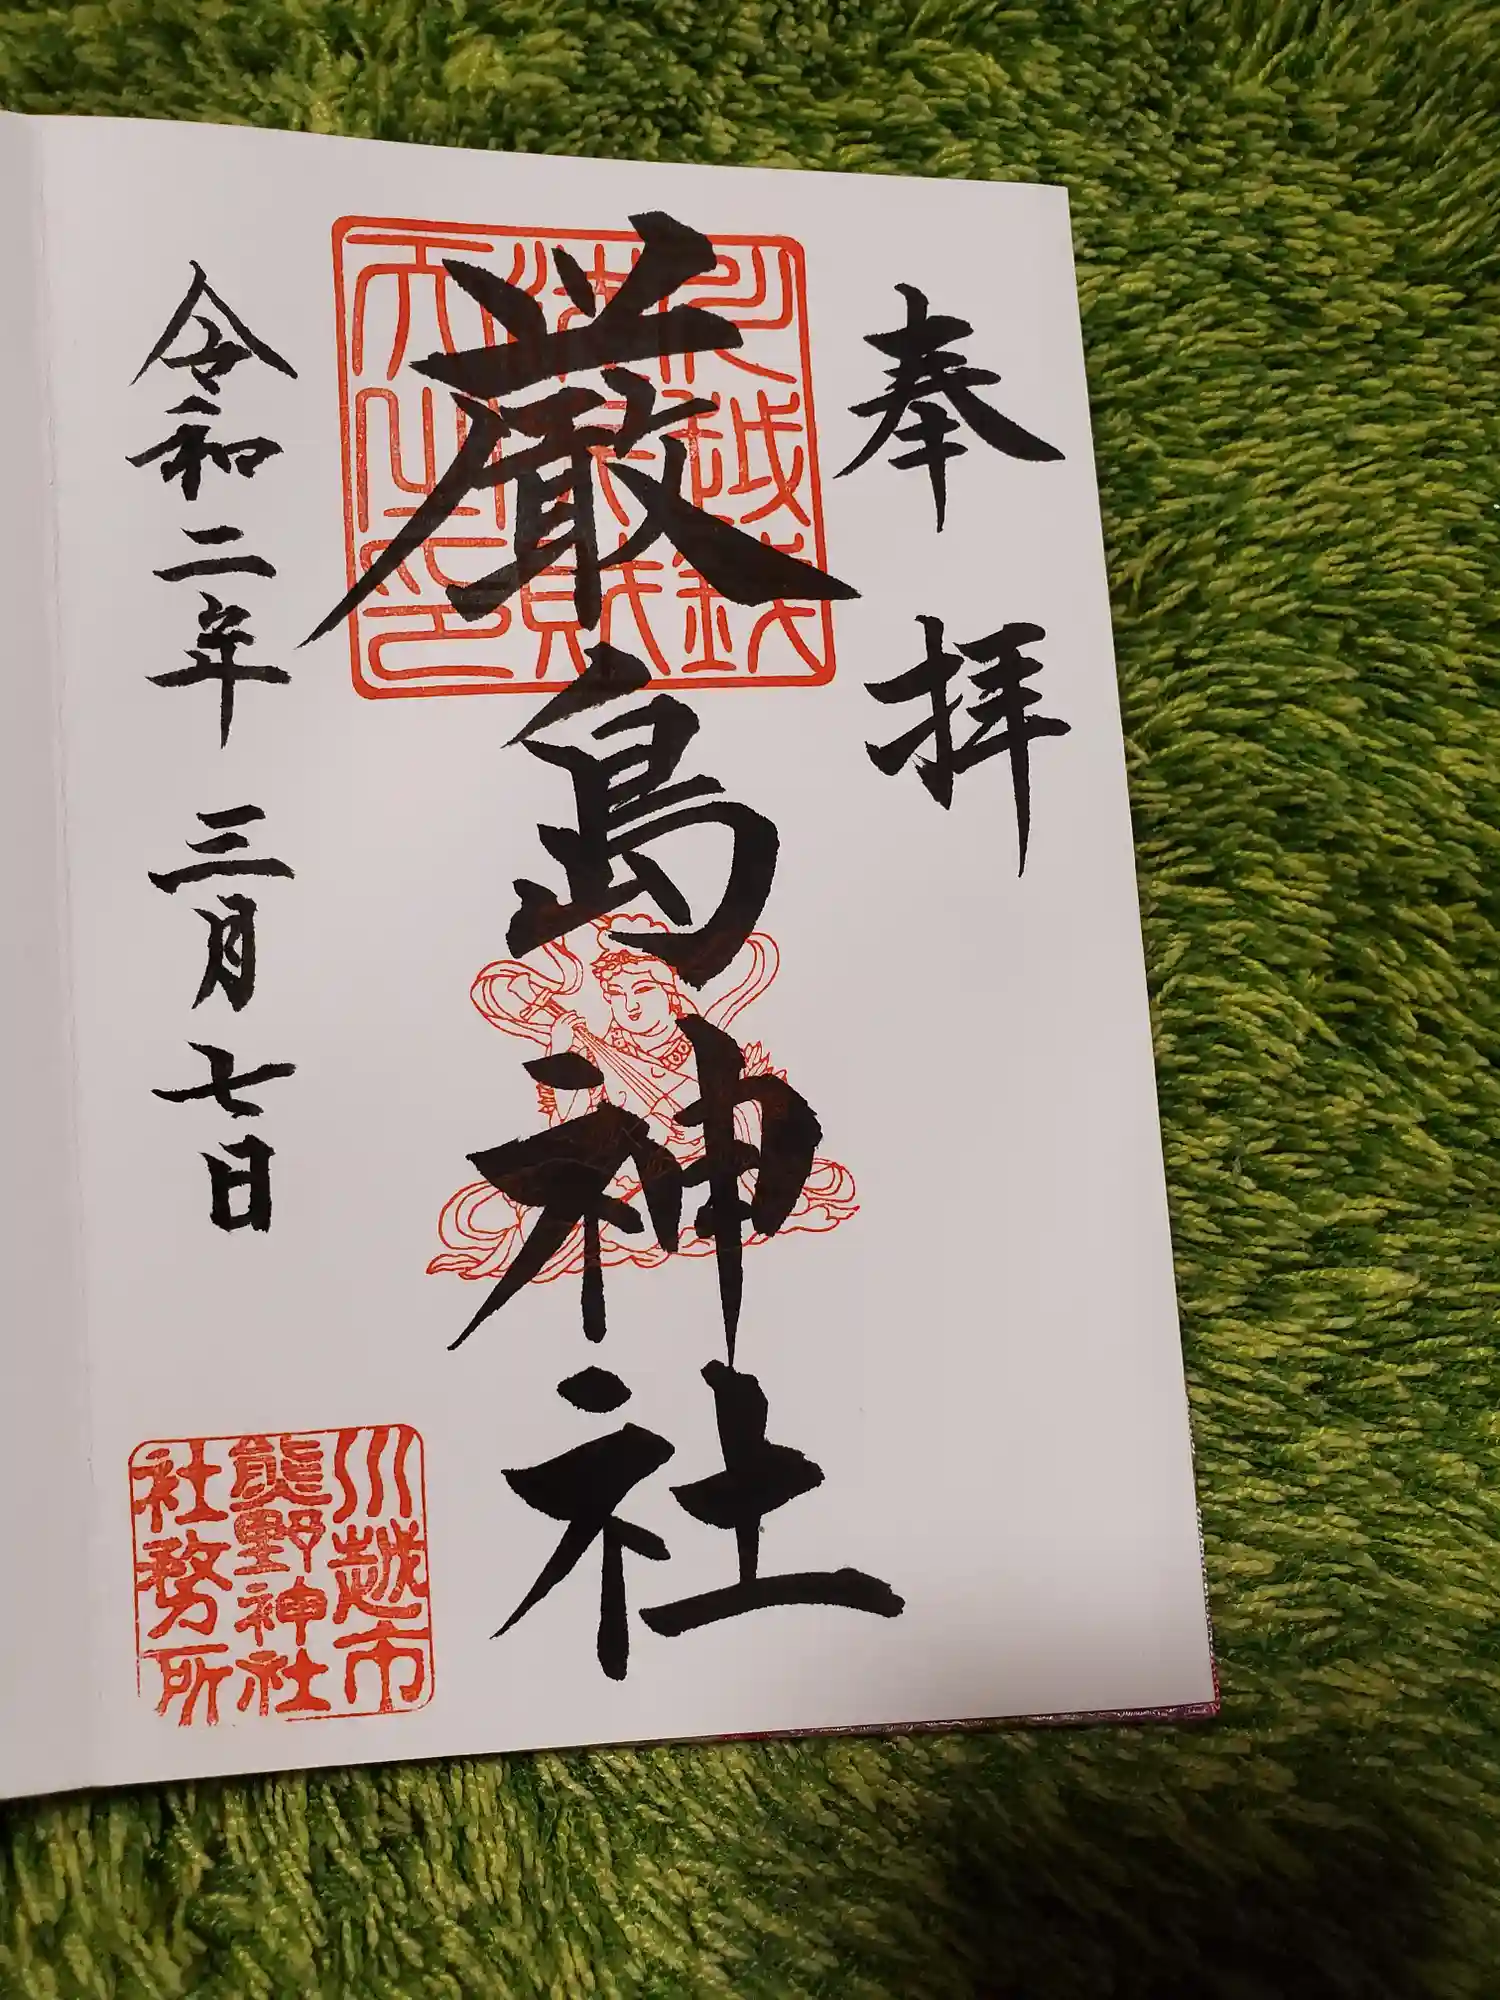 奉拝
厳島神社
令和二年 三月七日
川越市
熊野神社
社務所